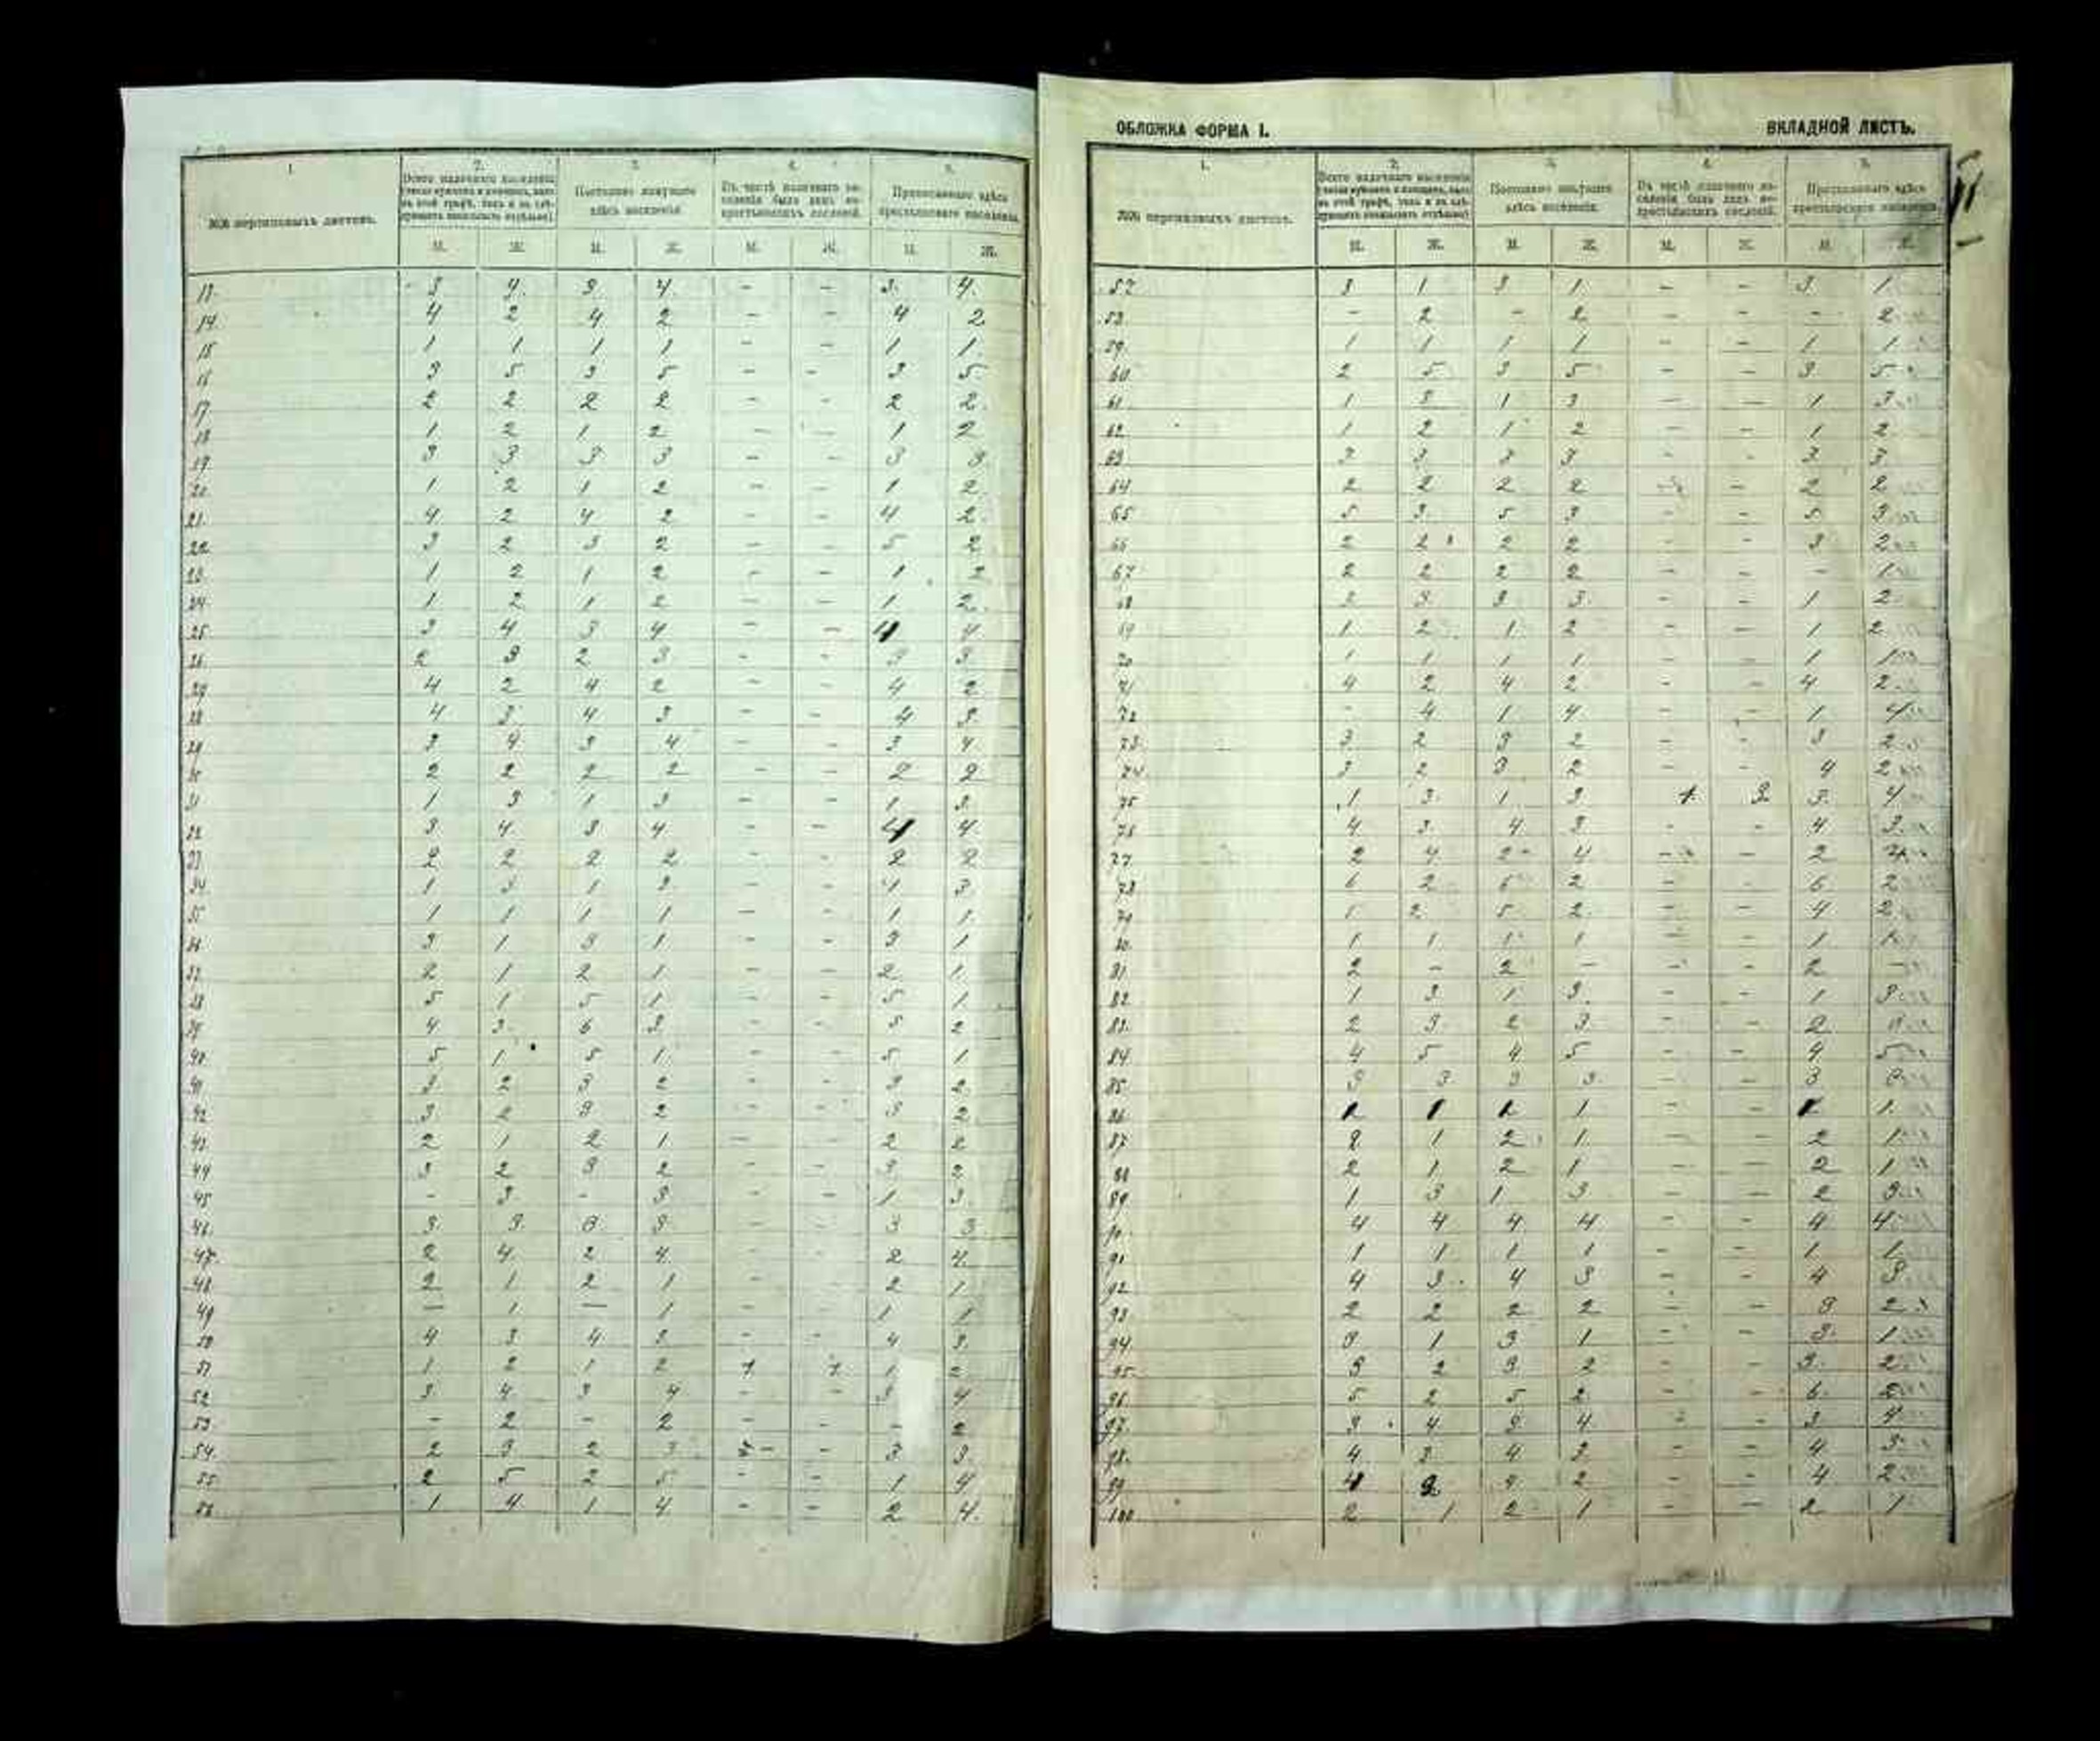 1. 2. 3. 4. 5.
№№ переписныхъ листовъ.
Всего наличнаго населенія
Постоянно живущаго здѣсь населенія.
Въ числѣ наличнаго населенія было лицъ некрестьянскихъ сословій.
Приписаннаго здѣсь крестьянскаго населенія.
М. Ж. М. Ж. М. Ж. М. Ж.
13. 3 4. 3 4. - - 3. 4.
14 4 2 4 2 - - 4 2
15 1 1 1 1 - - 1 1.
16 3 5 3 5 - - 3 5
17 2 2 2 2 - - 2 2.
18 1 2 1 2 - - 1 2
19 3 3 3 3 - - 3 3
20 1 2 1 2 - - 1 2.
21. 4 2 4 2 - - 4 2.
22 3 2 3 2 - - 5 2
23. 1 2 1 2 - - 1 2
24 1 2 1 2 - - 1 2.
25 3 4 3 4 - - 4 4
26 2 3 2 3 - - 3 3.
4 2 4 2 - - 4 2
28 4 3 4 3 - - 4 3.
29 3 4 3 4 - - 3 4.
30 2 2 2 2 - - 2 2
31 1 3 1 3 - - 1 3.
32 3 4 3 4 - - 4 4
33 2 2 2 2 - - 2 2
34 1 3 1 3 - - 3
35 1 1 1 1 - - 1 1
36 3 1 3 1 - - 3 1
37 2 1 2 1 - - 2 1.
38 5 1 5 1 - - 5 1
39 4 3 6 3 - - 5 2
40 5 1 5 1 - - 5 1
41 3 2 3 2 - - 3 2
42 3 2 3 2 - - 3 2
43 2 1 2 1 - - 2 2
44 3 2 3 2 - - 3 2
45 - 3 - 3 - - 1 3
46 3 3 3 3 - - 3 3
47. 2 4 2 4. - - 2 4.
48. 2 1 2 1 - - 2 1
49 - 1 - 1 - - 1 1
50 4 3 4 3 - - 4 3.
51 1 2 1 2 1 2
52 3 4 3 4 - - 3 4
53 - 2 - 2 - 2
54. 2 3 2 3 - 3 3.
55 2 5 2 5 - - 1 4
56 1 4 1 4 - - 2 4.
ОБЛОЖКА ФОРМА I. ВКЛАДНОЙ ЛИСТЪ.
1. 2. 3. 4. 5.
№№ переписныхъ листовъ.
Всего наличнаго населенія
Постоянно живущаго здѣсь населенія.
Въ числѣ наличнаго населенія было лицъ некрестьянскихъ сословій.
Приписаннаго здѣсь крестьянскаго населенія.
М. Ж. М. Ж. М. Ж. М. Ж.
57 3 1 3 1 - - 3 1
58 - 2 - 2 - - - 2
59. 1 1 1 1 - - 1 1
60 2 5 3 5 - - 3 5
61 1 3 1 3 - - 1 3
62 1 2 1 2 - - 1 2
63 3 3 3 3 - - 3 3
64 2 2 2 2 - - 2 2
65 5 3. 5 3 - - 5 3
66 2 2 2 2 - - 3 2
67 2 2 2 2 - - - 1
68 3 3 3 3 - - 1 2
69 1 2 1 2 - - 1 2
70 1 1 1 1 - - 1 1
71 4 2 4 2 - - 4 2
72 - 4 1 4 - - 1 4
73 3 2 3 2 - - 3 2
74 3 2 3 2 - - 4 2
75 1 3 1 3 1 3 3 4
76 4 3 4 3 - - 4 3
77 2 4 2 4 - - 2 4
78 6 2 6 2 - - 6 2
79 5 2 5 2 - - 4 2
80 1 1 1 1 - - 1 1
81 2 - 2 - - - 2 -
82 1 3 1 3 - - 1 3
83 2 3 2 3 - - 2
84 4 5 4 5 - - 4 5
85 3 3 3 3 - - 3 3
86 1 1 - - 1
87 2 1 2 1 - - 2 1
88 2 1 2 1 - - 2 1
89 1 3 1 3 - - 2 3
90 4 4 4 4 - - 4 4
91 1 1 1 1 - - 1 1
92 4 3 4 3 - - 4 3
93 2 2 2 2 - - 3 2
94 3 1 3 1 - - 3 1
95 3 2 3 2 - - 3 2
96 5 2 5 2 - - 6 2
97 3 4 3 4 - - 3 4
98 4 3 4 3 - - 4 3
99 4 2 4 2 - - 4 2
100 2 1 2 1 - - 2 1